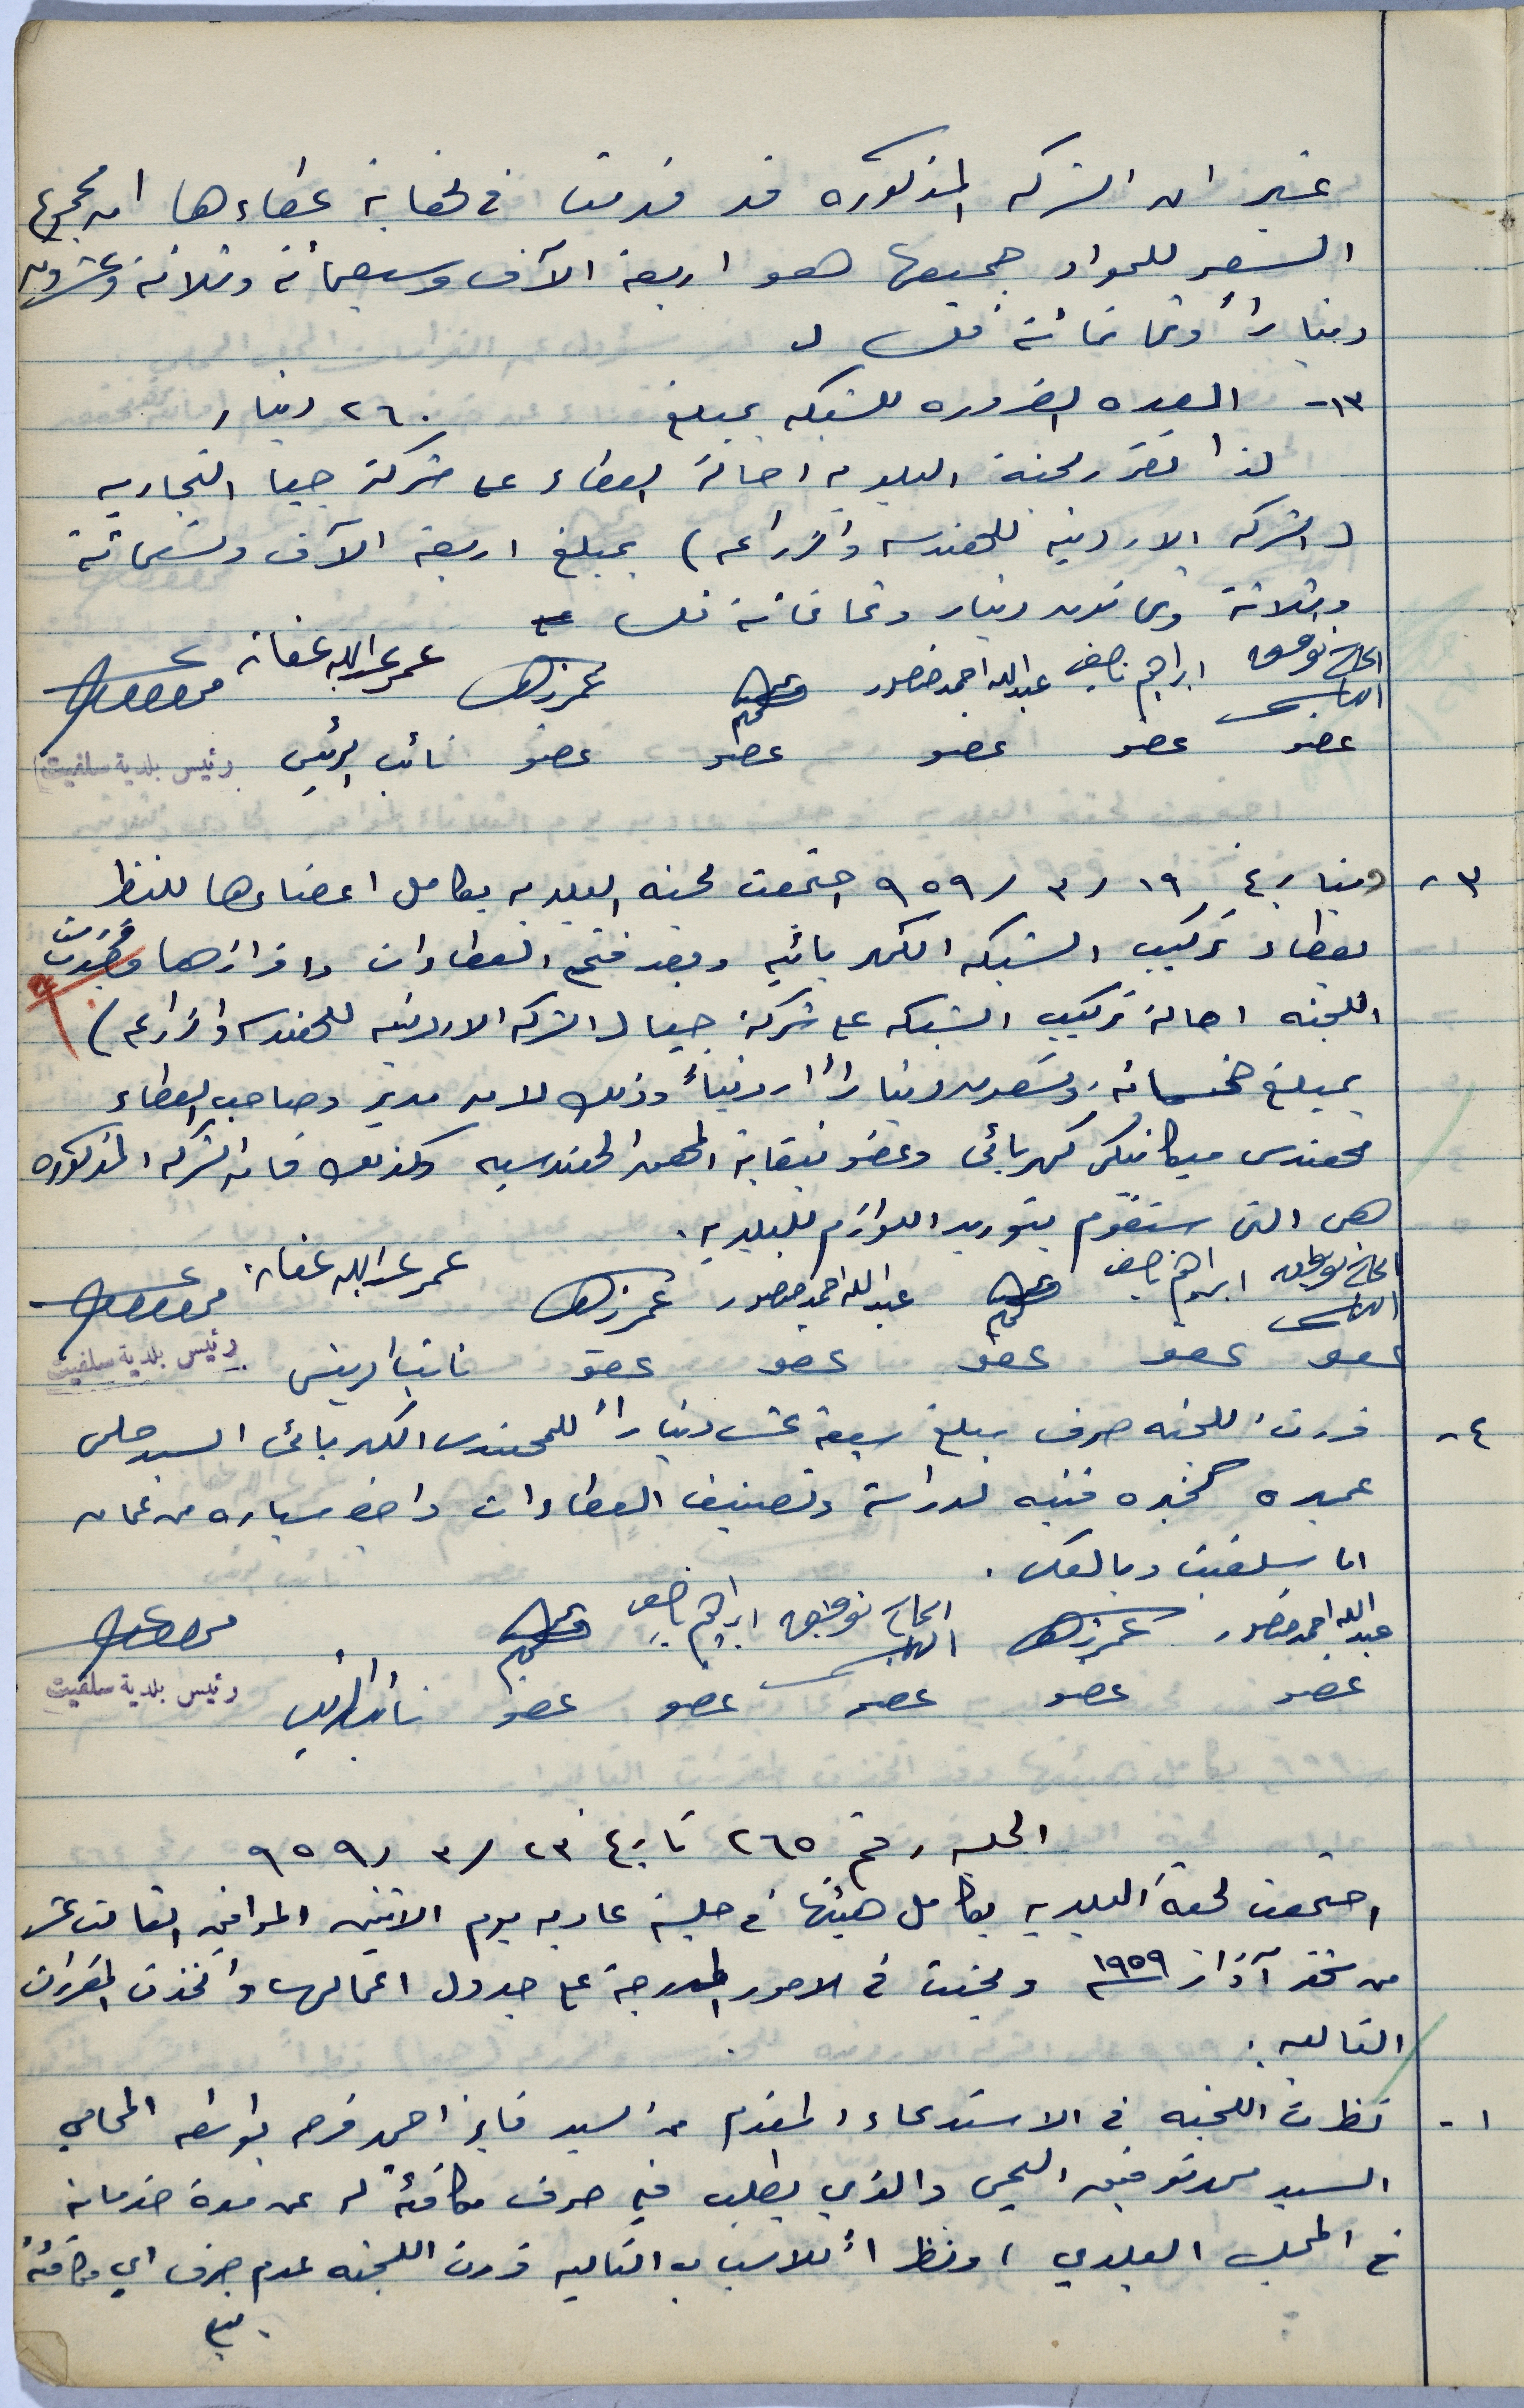 غير ان الشركه المذكوره قد قدمت في نهاية عطاءها ان مجموع
السعر للمواد جميعها هو اربعة الآف وسبعمائة وثلاثة وعشرون
ديناراً وثمانمائة فلس
١٣- العدد الضروره للشبكه بمبلغ ٢٦٠ دينار
لذا تقرر لجنة البلديه احالة العطاء على شركة جيا التجاريه
(الشركه الاردنيه للهندسه والزراعه) بمبلغ اربعة الآف وتسعمائة
وثلاثة وثمانون دينار وثمانمائة فلس
الحاج توفيق ابراهيم ناصيف عبدالله احمد منصور عمر زهد عمر عبدالله عفانه
عضو عضو عضو عضو عضو نائب الرئيس رئيس بلدية سلفيت
٣- بتاريخ ١٩/٣/٩٥٩ اجتمعت لجنه البلديه بكامل اعضاءها للنظر
بعطاء تركيب الشبكه الكهربائيه وبعد فتح العطاءات وافرازها قررت
اللجنه احالة تركيب الشبكه على شركة جيا (الشركه الاردنيه للهندسه والزراعه)
بمبلغ خمسمائه وتسعون ديناراً اردنياً وذلك لان مدير وصاحب العطاء
مهندس ميكانيكي كهربائي وعضو نقابة المهن الهندسيه وكذلك فان الشركه المذكوره
هي التي ستقوم بتوريد اللوازم للبلديه.
الحاج توفيق ابراهيم ناصيف عبدالله احمد منصور عمر زهد عمر عبدالله عفانه
عضو عضو عضو عضو عضو نائب الرئيس رئيس بلدية سلفيت
٤- قررت اللجنه صرف مبلغ سبعة عشر ديناراً للمهندس الكهربائي السيد حلمي
عميره كخبره فنيه لدراسة وتصنيف العطاءات واجرة سياره من عمان
الى سلفيت وبالعكس.
عبدالله احمد منصور عمر زهد الحاج توفيق ابراهيم ناصيف
عضو عضو عضو عضو عضو نائب الرئيس رئيس بلدية سلفيت
الجلسه رقم ٢٦٥ تاريخ ٢٣/٣/٩٥٩
اجتمعت لجنة البلديه بكامل هيئتها في جلسة عاديه يوم الاثنين الموافق الثالث عشر
من شهر آذار ١٩٥٩ وبحثت في الامور المدرجة على جدول اعمالها واتخذت المقررات
التاليه:
١- نظرت اللجنه في الاستدعاء المقدم من السيد فايز احمد فرح بواسطه المحامي
السيد محمد توفيق اليحيى والذي يطلب فيه صرف مكافئة له عن مدة خدماته
في المجلس البلدي، ونظراً للاسباب التاليه قررت اللجنه عدم صرف اي مكافئة